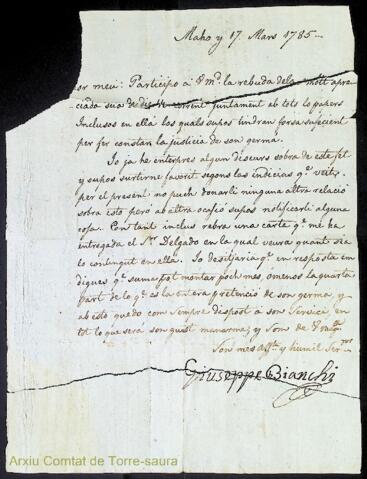 Maho y 17 Mars 1785
or meu: Participo á Vmd. la rebuda de la molt apre
ciada sua de de corrent juntament ab tots lo papers
Inclusos en ella los quals supos tindran forsa suficient
per fer constar la justicia de son germa.
Io ja he enterpres algun discurs sobra de este fet
y supos surtirne favorit segons las indicias q.e veitx.
per el present no puch donarli ninguna altra relació
sobra esto però ab altra ocasió supos notificarli alguna
cosa. Con tant inclus rebra una carta q.e me ha
entregada el Sr. Delgado en la qual veura quant sia
lo contingut en ella. Io desitjaria q.e en resposta em
digues q.e suma tot montar poch mes, o menos la quarta
part de lo q.e es la entera pretenció de son germa, y
ab esto quedo com sempre dispost á son servici, en
tot lo que sera son gust manarma; y son de Vmd.
Son mes aff.t y humil Ser.or
Giuseppe Bianchi
Arxiu Comtat de Torre-saura